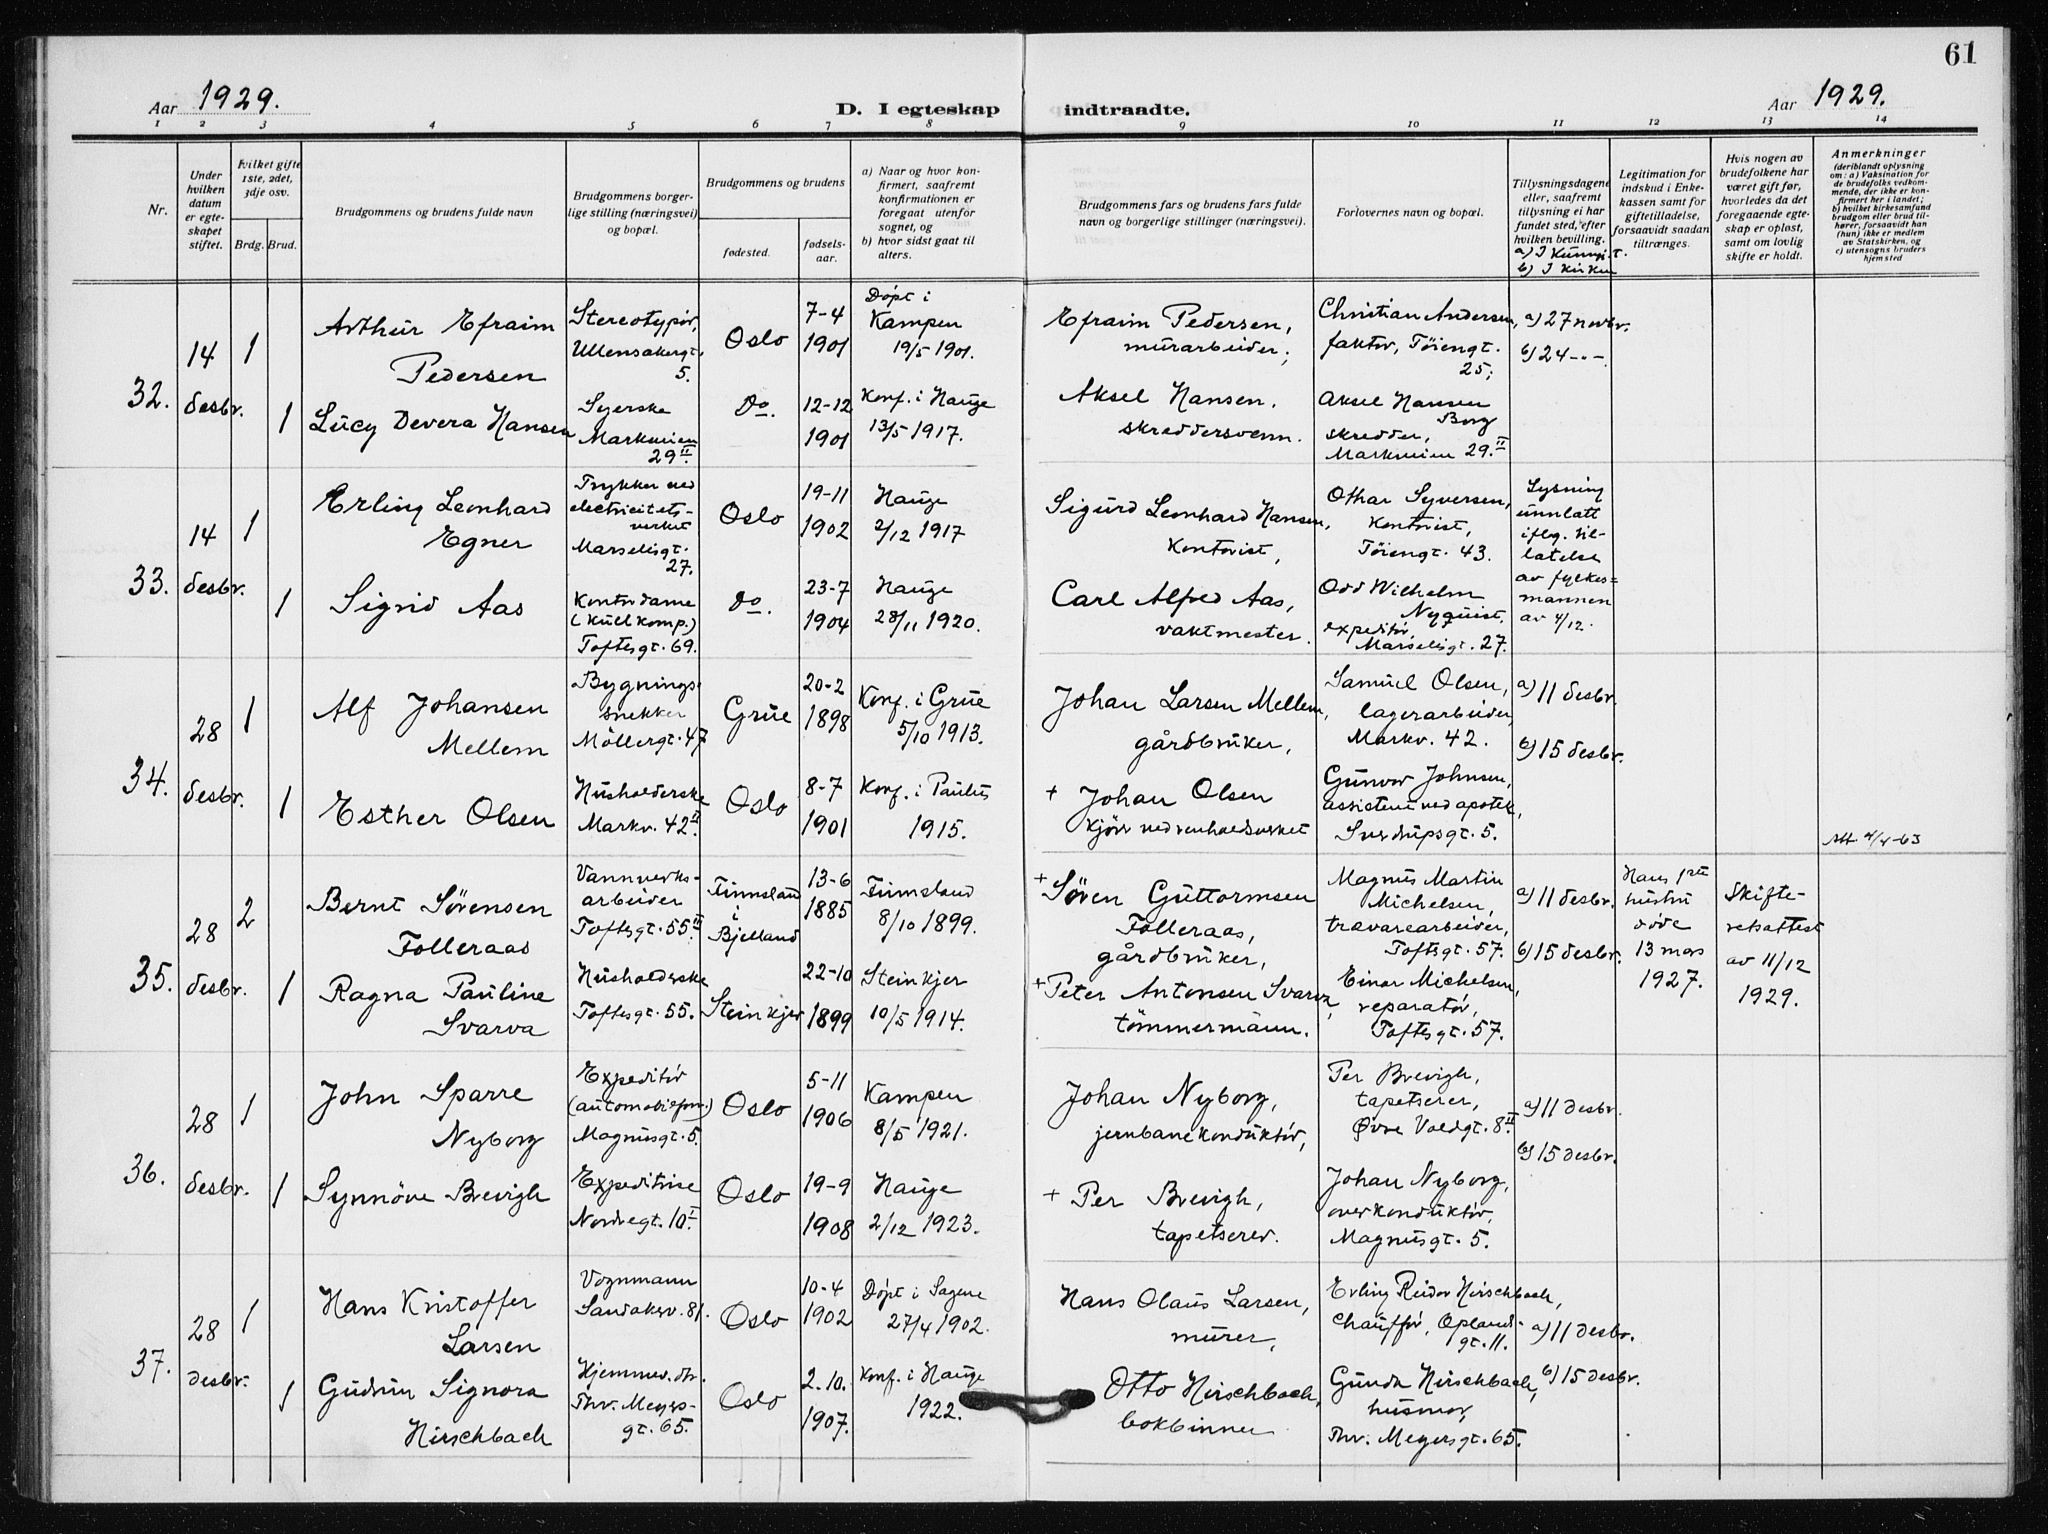 61
Aar 1929.
D. I egteskap indtraadte.
Aar 1929.
1 2 3 4 5 6 7 8 9 10 11 12 13 14
Nr.
Under
hvilken
datum
er egte-
skapet
stiftet.
Hvilket gifte
1ste, 2det,
3dje osv.
Brdg. Brud.
Brudgommens og brudens fulde navn
Brudgommens borger-
lige stilling (næringsvei)
og bopæl.
Brudgommens og brudens
fødested.
fødsels-
aar.
a) Naar og hvor kon-
firmert, saafremt
konfirmationen er
foregaat utenfor
sognet, og
b) hvor sidst gaat til
alters.
Brudgommens fars og brudens fars fulde
navn og borgerlige stillinger (næringsvei).
Forlovernes navn og bopæl.
Tillysningsdagene
eller, saafremt
tillysning ei har
fundet sted, efter
hvilken bevilling.
b) I kirken
Legitimation for
indskud i Enke-
kassen samt for
giftetilladelse,
forsaavidt saadan
tiltrænges.
Hvis nogen av
brudefolkene har
været gift før,
hvorledes da det
foregaaende egte-
skap er opløst,
samt om lovlig
skifte er holdt.
Anmerkninger
(deriblandt oplysning
om: a) Vaksination for
de brudefolks vedkom-
mende, der ikke er kon-
firmert her i landet;
b) hvilket kirkesamfund
brudgom eller brud til-
hører, forsaavidt han
(hun) ikke er medlem
av Statskirken, og
c) utensogns bruders
hjemsted
32.
14
desbr.
1
Arthur Efraim
Pedersen
Stereotypør,
Ullensakergt.
5.
Oslo
7-4
1901
Døpt i
Kampen
19/5 1901.
Efraim Pedersen,
murarbeider;
Christian Andersen,
faktor, Tøiengt.
25;
a) 27 novbr.
b) 24 -"-
1
Lucy Devera Hansen
Syerske
Markveien
29 II.
Do.
12-12
1901
Konf. i Hauge
13/5 1917.
Aksel Hansen.
skreddersvenn.
Aksel Hansen
Borg
skredder,
Markveien 29. II
33.
14
desbr.
1
Erling Leonhard
Egner
Trykker ved
electricitets-
verket
Marselisgt.
27.
Oslo
19-11
1902
Hauge
2/12 1917
Sigurd Leonhard Hansen,
Kontorist,
Othar Syversen,
Kontorist,
Tøiengt. 43.
Lysning
unnlatt
iflg. til-
latelse
av fylkes=
mannen
av 4/12.
1
Sigrid Aas
Kontordame
(Kullkomp.)
Toftesgt. 69.
Do.
23-7
1904
Hauge
28/11 1920.
Carl Alfred Aas,
vaktmester.
Odd Wilhelm
Nyquist,
expeditør,
Marselisgt. 27.
34.
28
desbr.
1
Alf Johansen
Mellem
Bygnings-
snekker
Möllergt. 47
Grue
20-2
1898
Konf. i Grue
5/10 1913.
Johan Larsen Mellem,
gårdbruker,
Samuel Olsen,
lagerarbeider,
Markv. 42.
a) 11 desbr.
b) 15 desbr.
1
Esther Olsen
Husholderske
Markv. 42 II.
Oslo
8-7
1901
Konf. i Paulus
1915.
+ Johan Olsen
kjører ved renholdsverket
Gunvor Johnsen,
assistent ved apotek,
Sverdrupsgt. 5.
35.
28
desbr.
2
Bernt Sørensen
Folleraas
Vannverks-
arbeider
Toftesgt. 55 III
Finnsland
i
Bjelland
13-6
1885
Finnsland
8/10 1899.
+ Søren Guttormsen
Folleraas,
gårdbruker,
Magnus Martin
Michelsen,
travarearbeider,
Toftesgt. 57.
a) 11 desbr.
b) 15 desbr.
Hans
hustru
døde
13 mars
1927.
Skifte-
retsattest
av 11/12
1929.
1
Ragna Pauline
Svarva
Husholderske
Toftesgt. 55.
Steinkjer
22-10
1899
Steinkjer
10/5 1914.
+ Peter Antonsen Svarva,
tømmermann.
Einar Michelsen,
reparatør,
Toftesgt. 57.
36.
28
desbr.
1
John Sparre
Nyborg
Expeditør
Magnusgt. 5.
Oslo
5-11
1906
Kampen
8/5 1921.
Johan Nyborg,
jernbanekonduktør,
Per Brevigh,
tapetserer,
Øvre Voldgt. 8. II
a) 11 desbr.
b) 15 desbr.
1
Synnöve Brevigh
Expeditrise
Nordregt. 10 I.
Oslo
19-9
1908
Hauge
2/12 1923.
+ Per Brevigh,
tapetserer.
Johan Nyborg,
overkonduktør,
Magnusgt. 5.
37.
28
desbr.
1
Hans Kristoffer
Larsen
Vognmann
Sandakerv. 81.
Oslo
10-4
1902
Døpt i Sagene
27/4 1902.
Hans Olaus Larsen,
murer,
Erling Reidar Hirschbach,
Chauffør, Opland-
gt. 11.
a) 11 desbr.
b) 15 desbr.
1
Gudrun Signora
Hirschbach
Hjemmev. dtr.
Thv. Meyers-
gt. 65.
Oslo
2.10.
1907.
Konf. i Hauge
1922.
Otto Hirschbach,
bokbinner
Gunda Hirschbach,
husmor,
Thv. Meyersgt. 65.